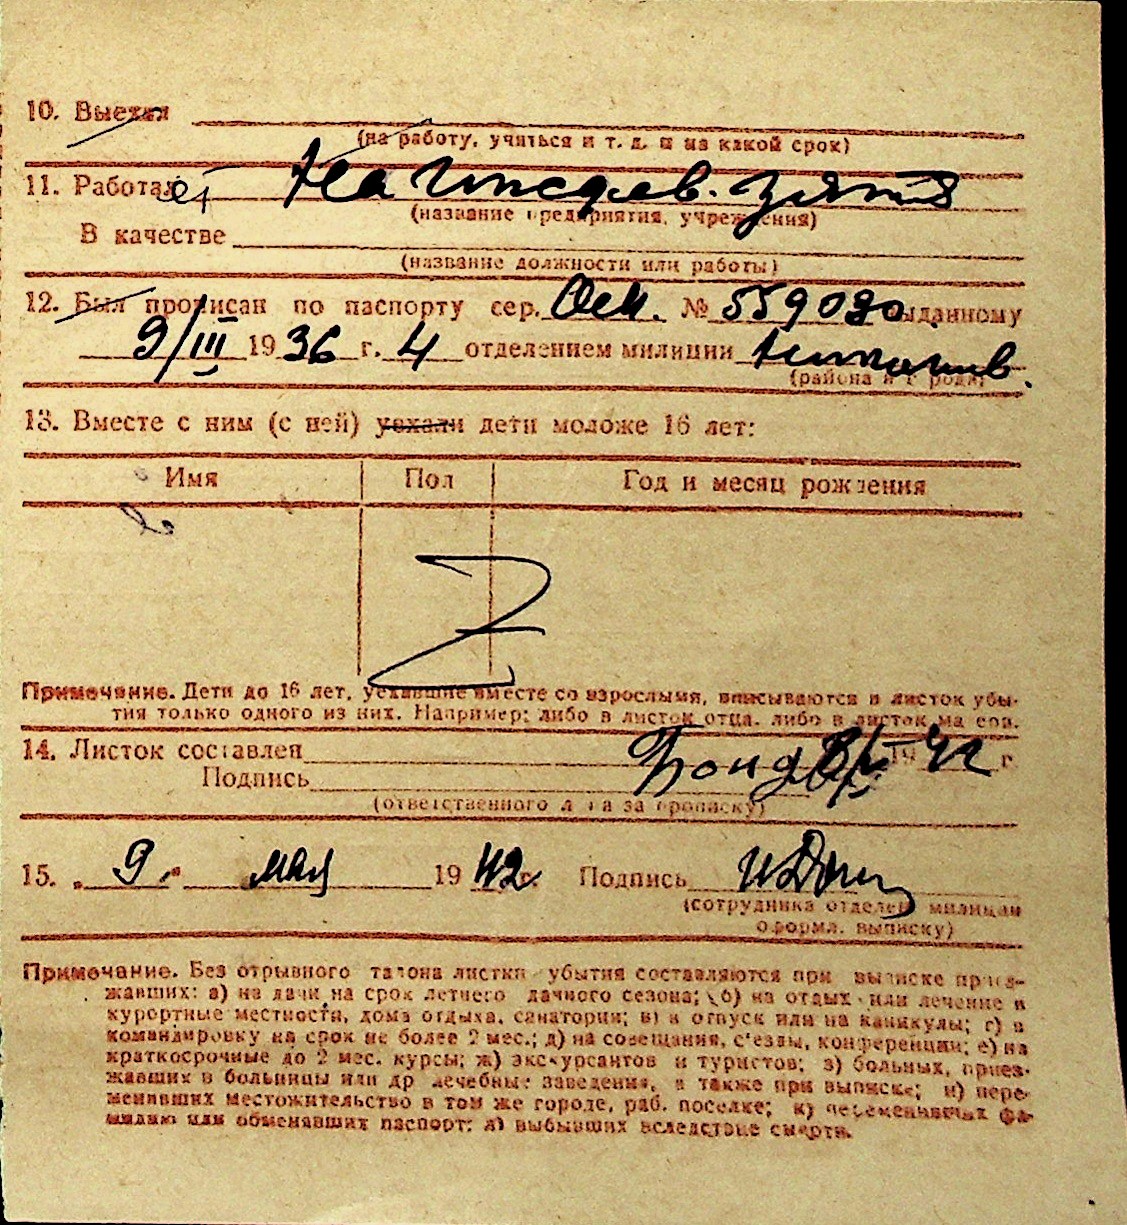 10. Выехал
(на работу, учиться и т. д. и на какой срок)
11. Работал ет На иждев. зятя
(название предприятия, учреждения)
В качестве
(название должности или работы)
12. Был прописан по паспорту сер. № 559080 выданному
9/III 1936 г. 4 отделением милиции
(района и города)
13. Вместе с ним (с ней) уехали дети моложе 16 лет:
Имя Пол Год и месяц рождения
Z
Примечание. Дети до 16 лет, уехавшие вместе со взрослыми, вписываются в листок убы-
тия только одного из них. Например: либо в листок отца, либо в листок матери.
14. Листок составлен 19 42 г
Подпись
(ответственного лица за прописку)
15. „ 9 " мая 1942 г. Подпись
(сотрудника отделен. милиции
оформл. выписку)
Примечание. Без отрывного талона листки убытия составляются при выписке приез-
жавших: а) на дачи на срок летнего дачного сезона; б) на отдых или лечение в
курортные местности, дома отдыха, санатории; в) в отпуск или на каникулы; г) в
командировку на срок не более 2 мес.; д) на совещания, с'езды, конференции; е) на
краткосрочные до 2 мес. курсы; ж) экскурсантов и туристов; з) больных, приез-
жавших в больницы или др лечебные заведения, а также при выписке; и) пере-
менивших местожительство в том же городе, раб. поселке; к) переменивших фа-
милию или обменявших паспорт; л) выбывших вследствие смерти.